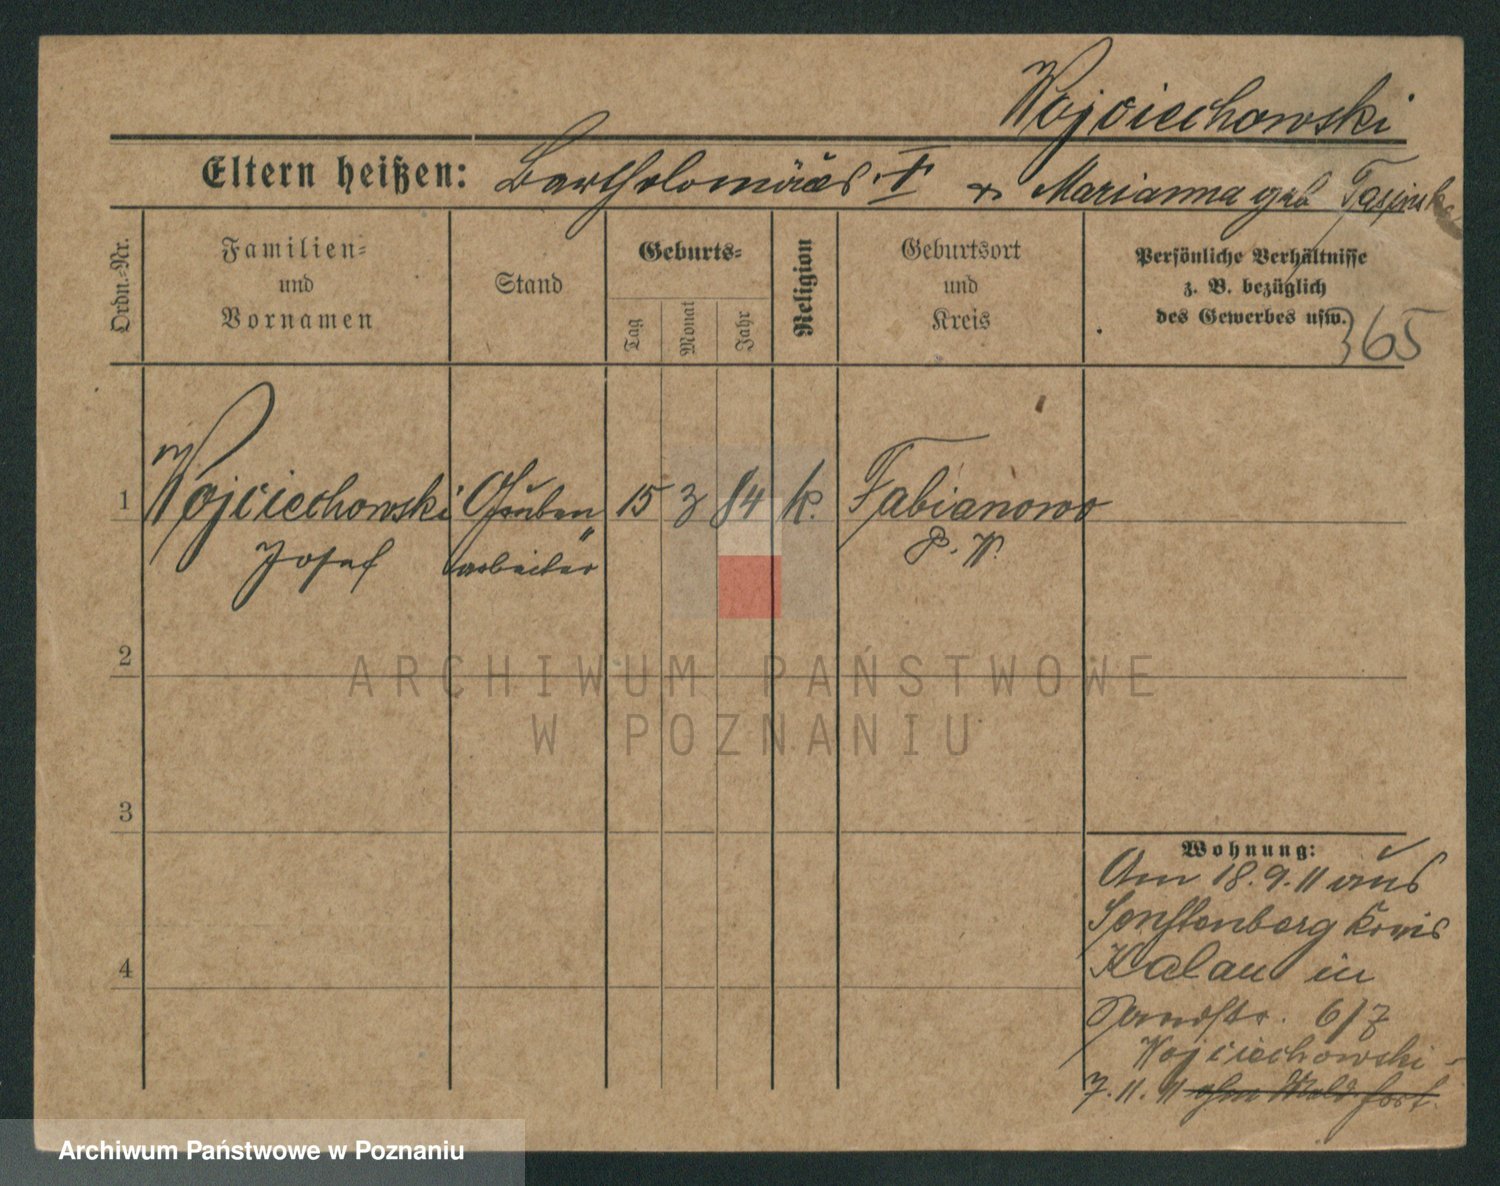 Wojciechowski
Eltern heißen: Bartholomäus † u Marianna geb
Ordn.-Nr.
Familien-
und
Vornamen
Stand
Geburts-
Tag
Monat
Jahr
Religion
Geburtsort
und
Kreis
Persönliche Verhältnisse
z. B. bezüglich
des Gewerbes usw.
365
1 Wojciechowski Gruben 15 3 84 k. Fabianowo
Josef arbeiter P. W.
2
3
4
Wohnung:
Am 18.9.11 aus
Senftenberg Kreis
Kalau in
Sandstr. 6/7
Wojciechowski
7.11.11 ohne Meld fort.
ARCHIWUM PAŃSTWOWE
W POZNANIU
Archiwum Państwowe w Poznaniu